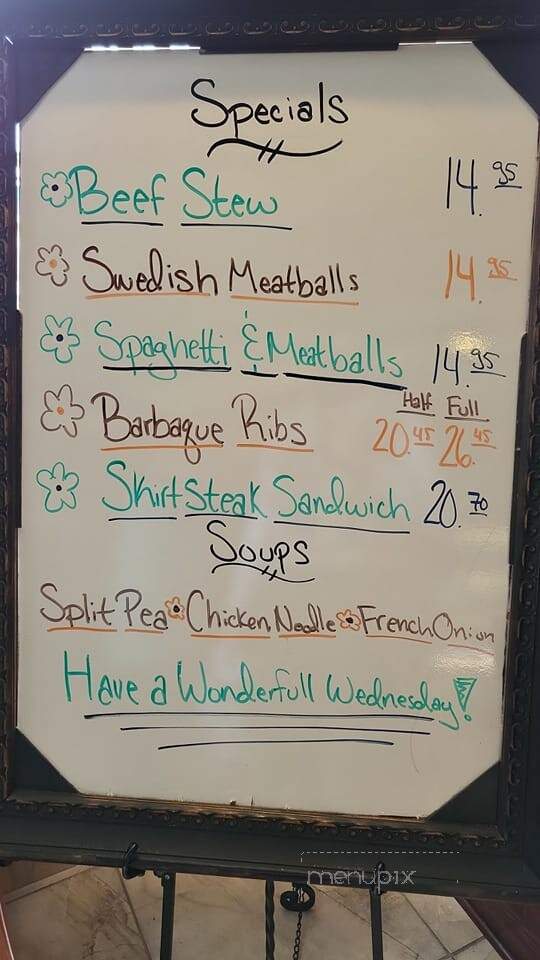 Specials
Beef Stew 14.95
Swedish Meatballs 14.95
Spaghetti & Meatballs 14.95
Half Full
Barbaque Ribs 20.45 26.45
Skirt Steak Sandwich 20.70
Soups
Split Pea Chicken Noodle French Onion
Have a Wonderfull Wednesday!
menupix